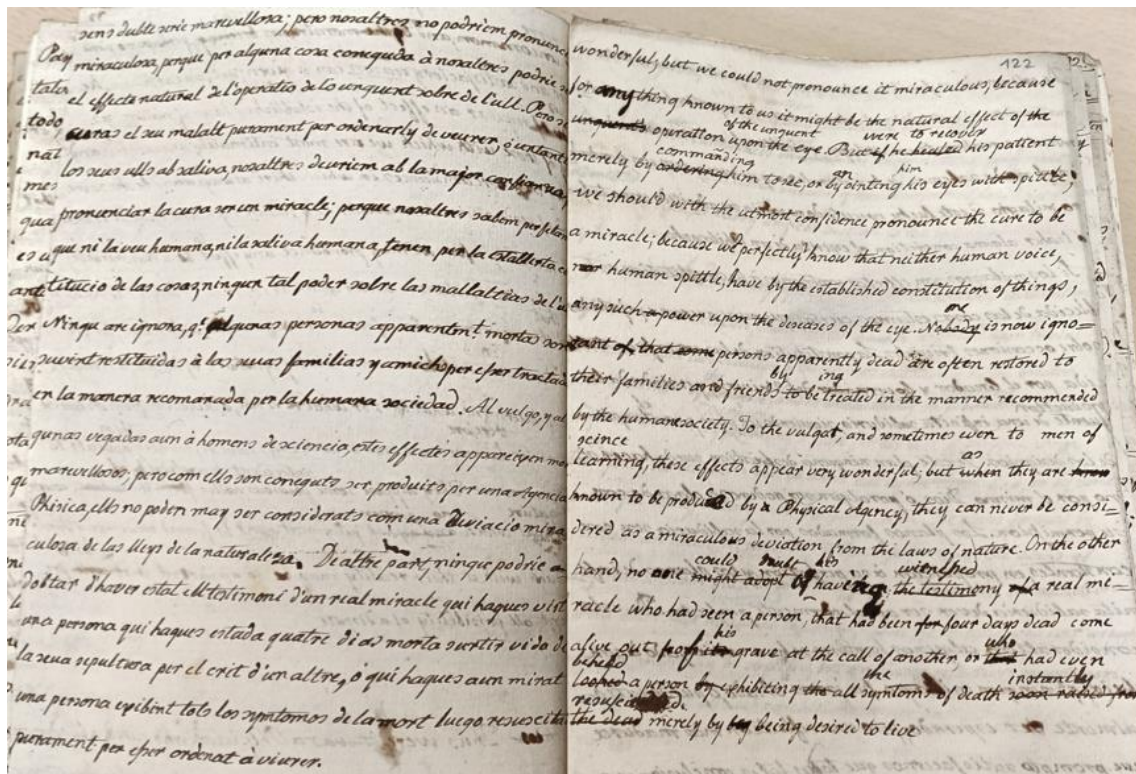 sens dubte serie marvellosa; pero nosaltres no podriem pronunc
miraculosa, perque per alguna cosa coneguda à nosaltres podrie s
el effecte natural de l'operatio de lo unguent sobre de l'ull. Pero si
curas el seu malalt purament per ordenarly de veurer, o untant
los seus ulls ab saliva, nosaltres deuriem ab la major confiansa,
pronunciar la cura ser un miracle; perque nosaltres sabem perfetam
que ni la veu humana, ni la saliva humana, tenen per la establerta c
titucio de las cosas, ningun tal poder sobre las mallaltias de l'u
Ningu are ignora, q.e algunas personas apparentem.t mortas son
suvint restituidas à las suas familias y amichs per esser tractad
en la manera recomanada per la humana sociedad. Al vulgo, y al
gunas vegadas aun à homens de sciencia, estes effectes appareixen mo
marvellosos; pero com ells son coneguts ser produits per una Agencia
Phisica, ells no poden may ser considerats com una deviacio mira
culosa de las lleys de la naturalesa. De altre part, ningu podrie
dobtar d'haver estat ell testimoni d'un real miracle qui hagues vist
una persona qui hagues estada quatre dias morta surtir vida de
la seua sepultura per el crit d'un altre, ò qui hagues aun mirat
una persona exibint tots los symtomos de la mort luego resuscita
purament per esser ordenat à viurer.
122
wonderful; but we could not pronounce it miraculous, because
for any thing known to us it might be the natural effect of the
of the unguent were to recover
unguents operation upon the eye. But if he healed his patient
commanding an him
merely by ordering him to see, or by ointing his eyes with spittle,
we should with the utmost confidence pronounce the cure to be
a miracle; because we perfectly know that neither human voice,
nor human spittle, have by the established constitution of things,
any such a power upon the deseases of the eye. Nobody is now igno=
one
rant of, that some persons apparently dead are often restored to
by ing
their families and friends to be treated in the manner recommended
by the humane society. To the vulgar, and sometimes even to men of
scince
learning, these effects appear very wonderful; but when they are know
as
known to be produced by a Physical Agency, they can never be consi=
dered as a miraculous deviation from the laws of nature. On the other
could his witnessed
hand, no one might adopt of having the testimony of a real me=
racle who had seen a person, that had been for four days dead come
his who
alive out from its grave at the call of another or that had even
beheld the instantly
looked a person by exhibiting the all symtoms of death soon raised from
the dead merely by being desired to live